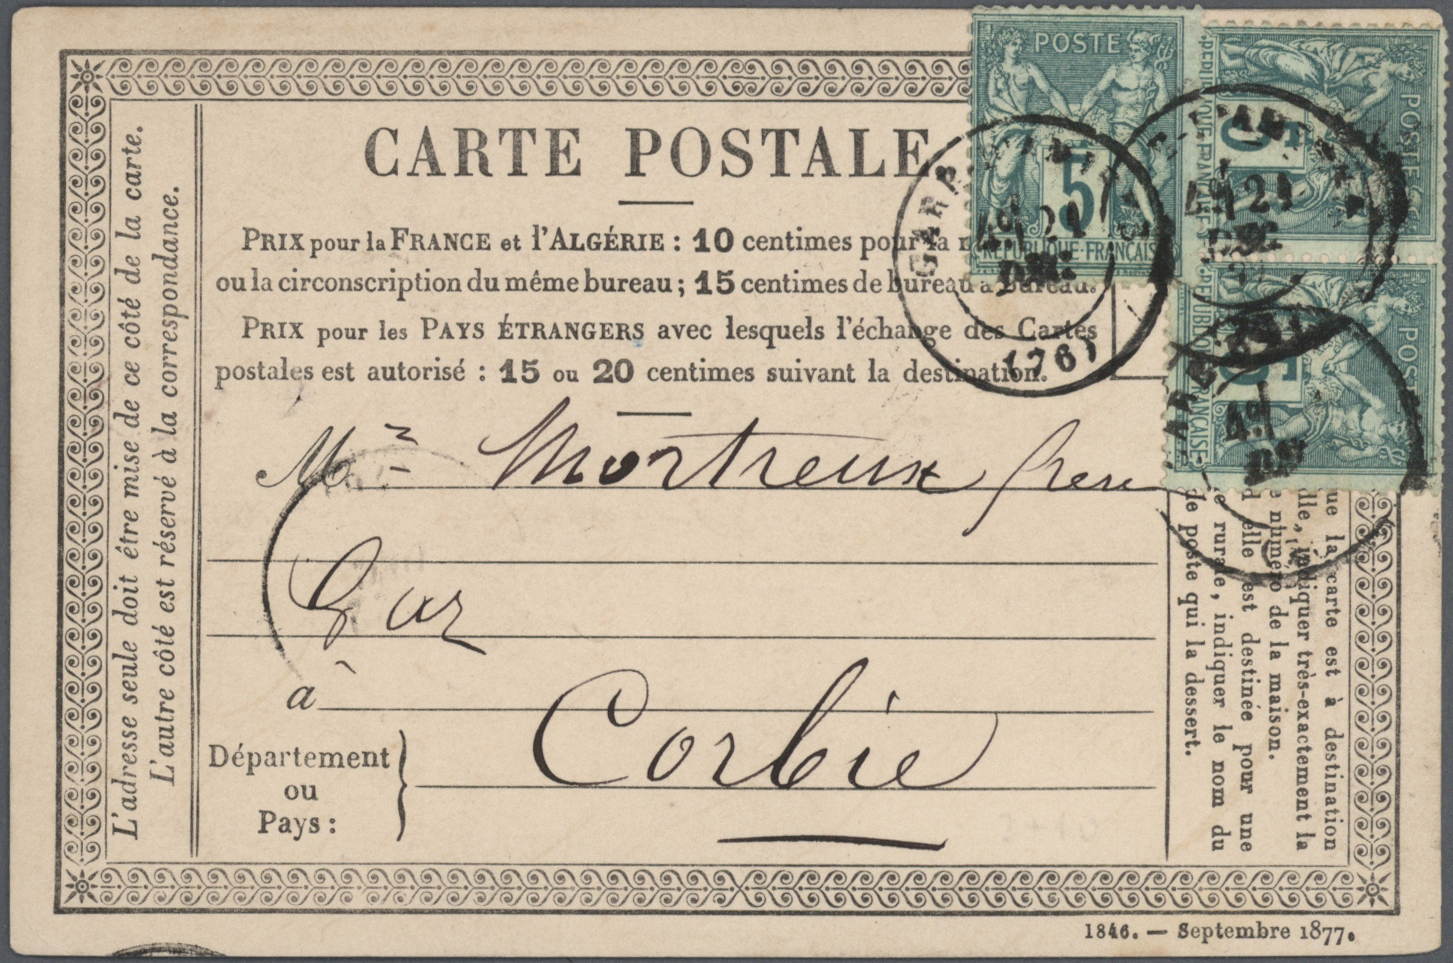 CARTE POSTALE
PRIX pour la FRANCE et l'ALGÉRIE : 10 centimes pour la
ou la circonscription du même bureau ; 15 centimes de bureau à bureau.
PRIX pour les PAYS ÉTRANGERS avec lesquels l'échange des Cartes
postales est autorisé : 15 ou 20 centimes suivant la destination.
Mr Mortreux frère
Gar
à
Corbie
Département
ou
Pays :
L'adresse seule doit être mise de ce côté de la carte.
L'autre côté est réservé à la correspondance.
POSTE
5
RÉPUBLIQUE FRANÇAISE
POSTE
POSTE
21
DEC
(76)
21
DEC
ue la carte est à destination
indiquer très-exactement la
numéro de la maison.
elle est destinée pour une
rurale, indiquer le nom du
de poste qui la dessert.
1846. — Septembre 1877.